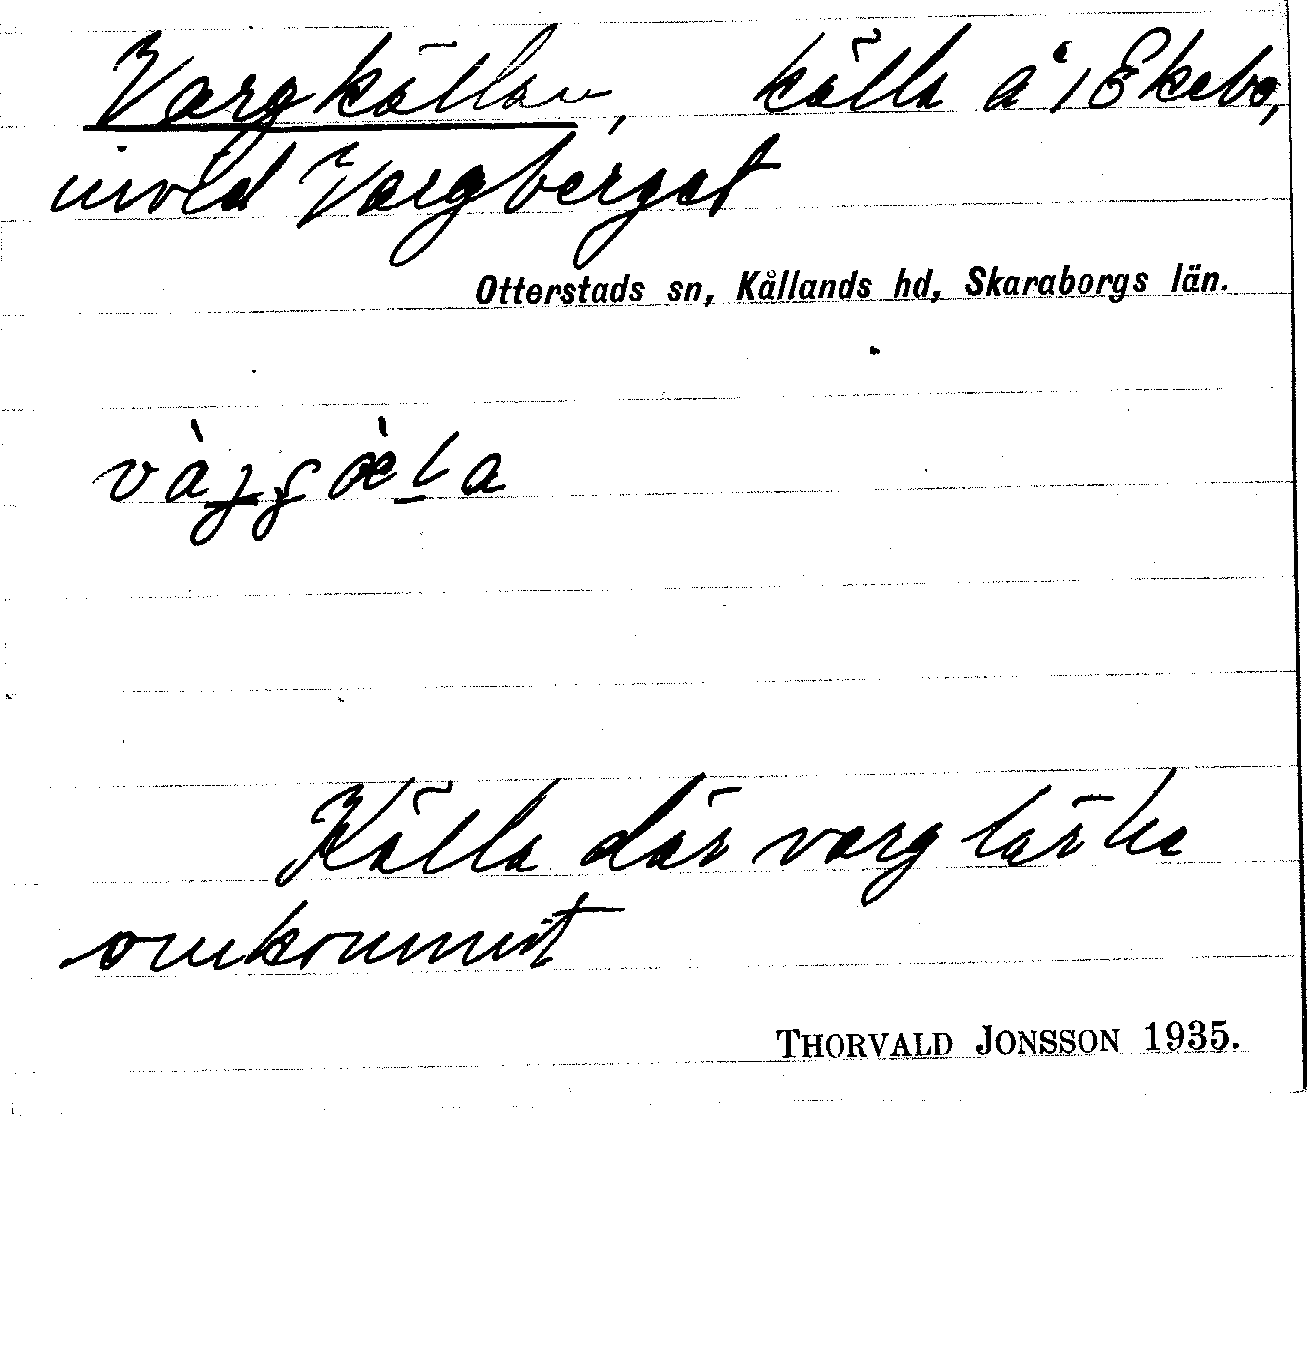 Vargkällan, källa å 1 Ekebo,
invid Vargberget
Otterstads sn, Kållands hd, Skaraborgs län.
Källa där varg lär ha
omkommit
THORVALD JONSSON 1935.